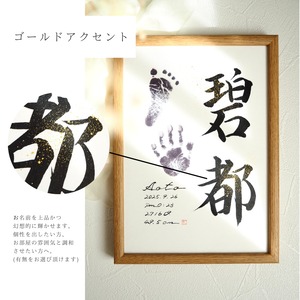 ゴールドアクセント
都
碧都
Aoto
2025.9.26
お名前を上品かつ
幻想的に輝かせます。
個性を出したい方。
お部屋の雰囲気と調和
させたい方へ。
(有無をお選び頂けます)